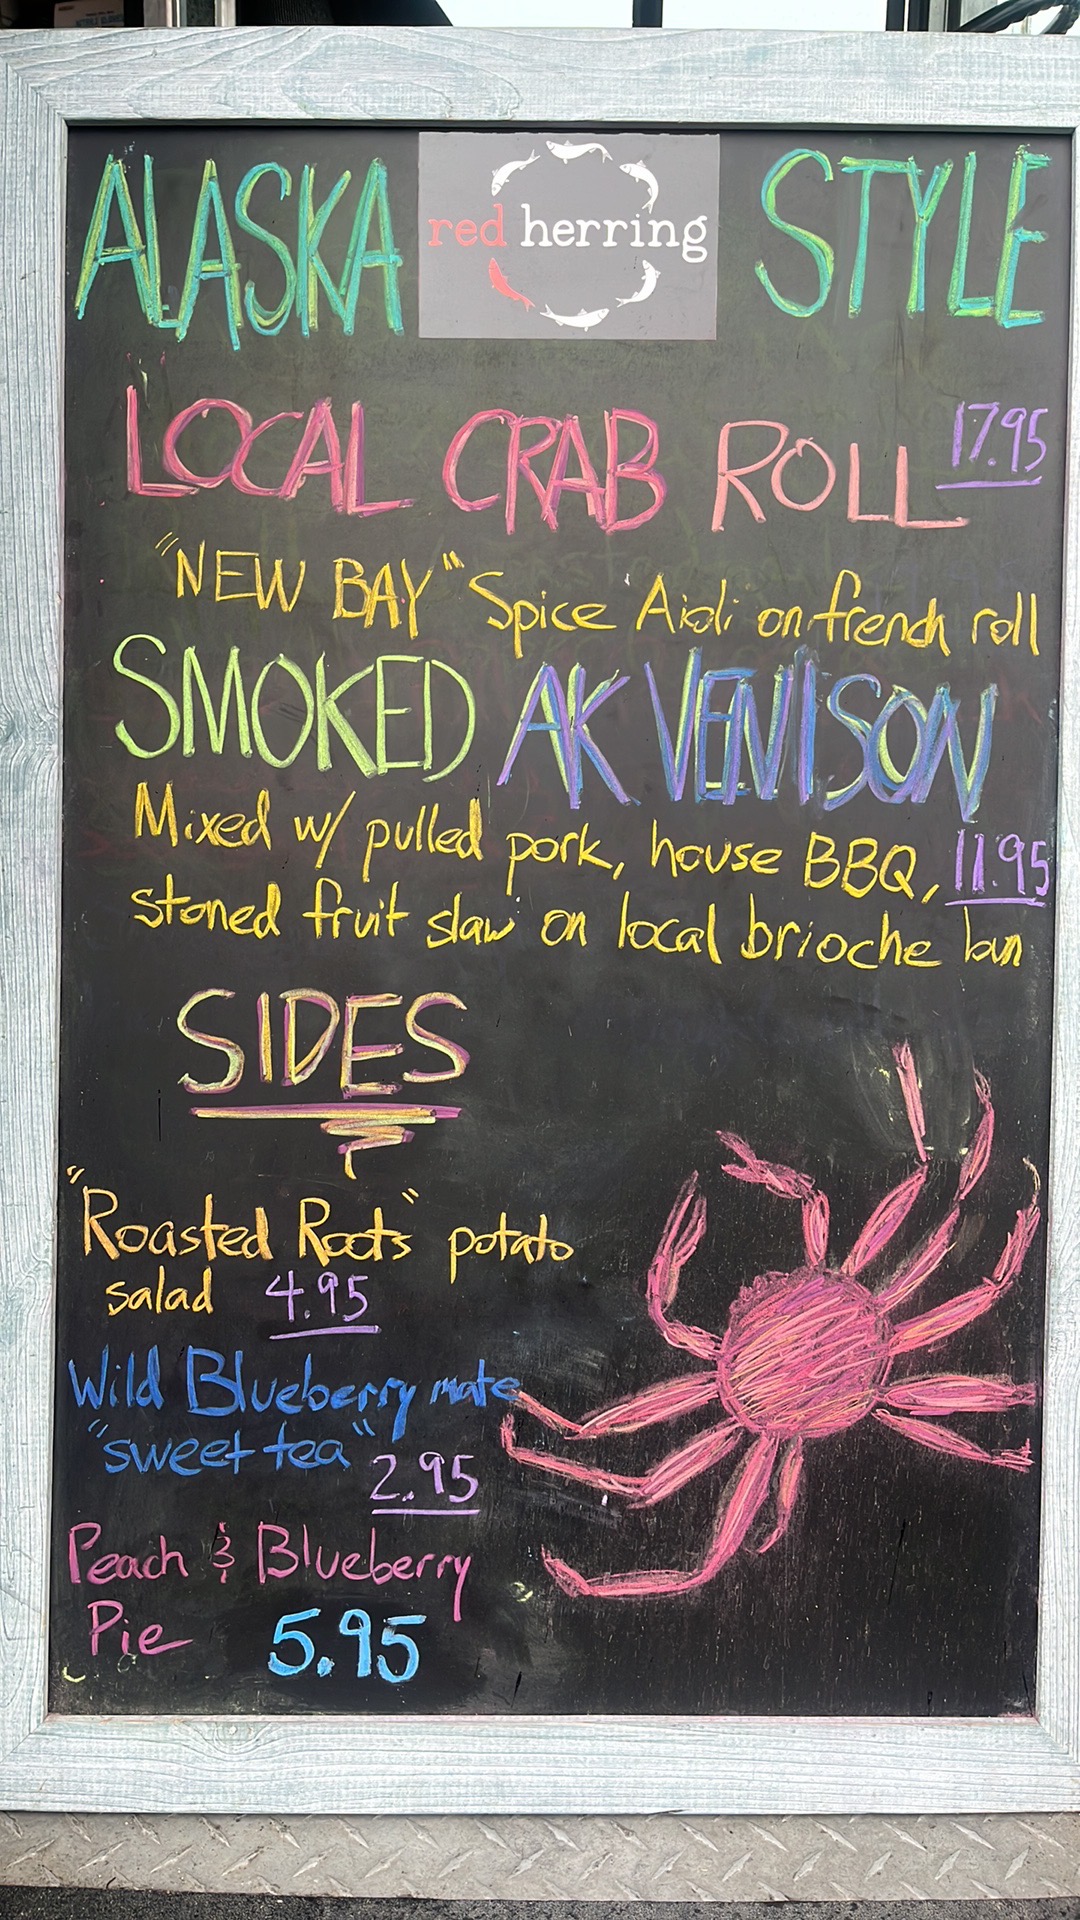 ALASKA red herring STYLE
LOCAL CRAB ROLL 17.95
"NEW BAY" Spice Aioli on french roll
SMOKED AK VENISON
Mixed w/ pulled pork, house BBQ, 11.95
stoned fruit slaw on local brioche bun
SIDES
"Roasted Roots" potato
salad 4.95
Wild Blueberry mate
"sweet tea" 2.95
Peach & Blueberry
Pie 5.95